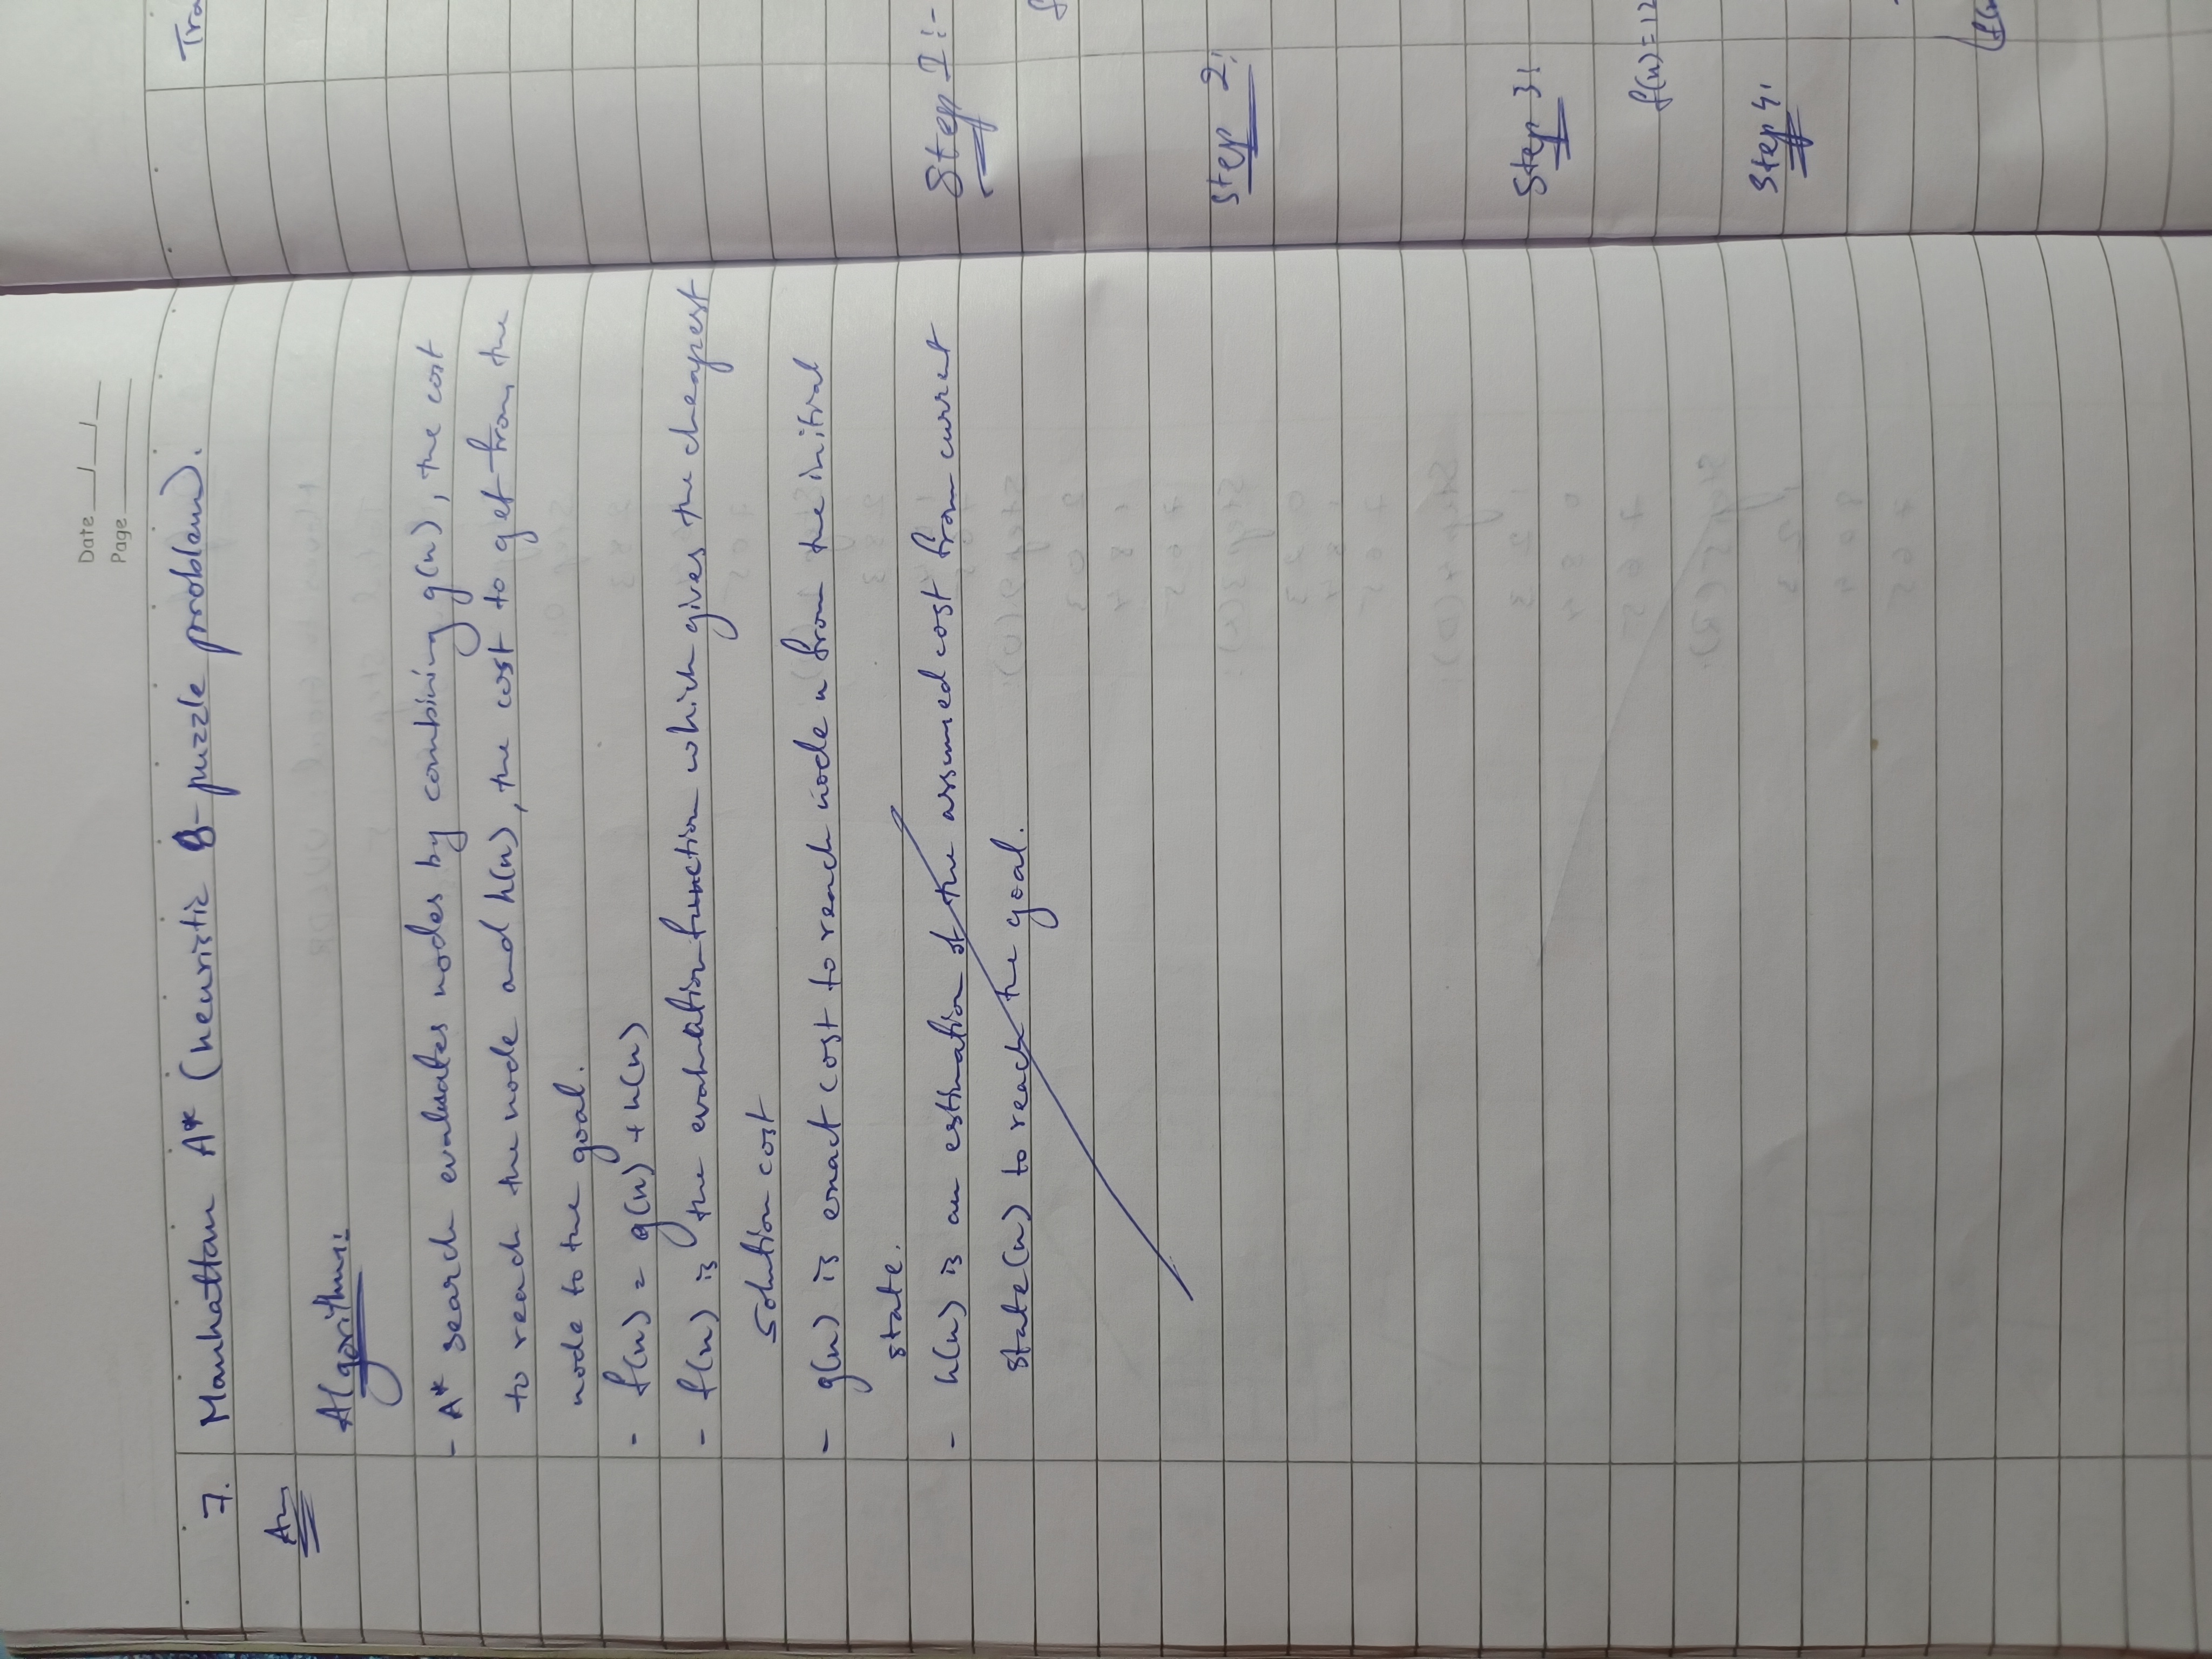 Date __/__/__
Page
7. Manhattan A* (heuristic 8-puzzle problem).
Ans
Algorithm:
- A* search evaluates nodes by combining g(n), the cost
to reach the node and h(n), the cost to get from the
node to the goal.
- f(n) = g(n) + h(n)
- f(n) is the evaluation function which gives the cheapest
solution cost
- g(n) is exact cost to reach node n from the initial
state.
- h(n) is an estimation of the assumed cost from current
state (n) to reach the goal.
Tra
Step 1:-
f
Step 2:
Step 3:
f(n)=12
Step 4: